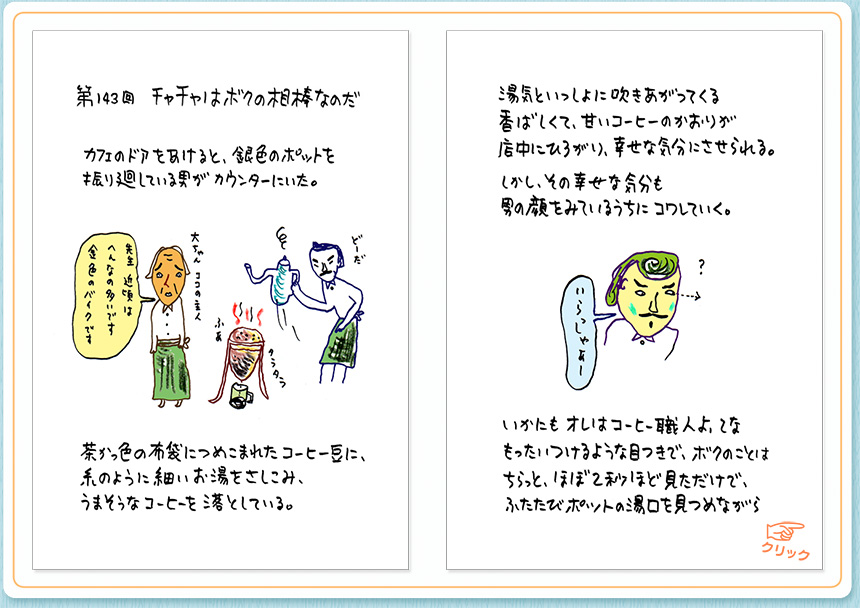 第143回 チャチャはボクの相棒なのだ
カフェのドアをあけると、銀色のポットを
振り廻している男がカウンターにいた。
先生 近頃は
へんなの多いです
金色のバイクです
大ちゃん ココの主人
どーだ
ふぁ
タラタラ
茶かっ色の布袋につめこまれたコーヒー豆に、
糸のように細いお湯をさしこみ、
うまそうなコーヒーを落としている。
湯気といっしょに吹きあがってくる
香ばしくて、甘いコーヒーのかおりが
店中にひろがり、幸せな気分にさせられる。
しかし、その幸せな気分も
男の顔をみているうちにコワしていく。
?
いらっしゃぁー
いかにもオレはコーヒー職人よ、てな
もったいつけるような目つきで、ボクのことは
ちらっと、ほぼ2秒ほど見ただけで、
ふたたびポットの湯口を見つめながら
クリック